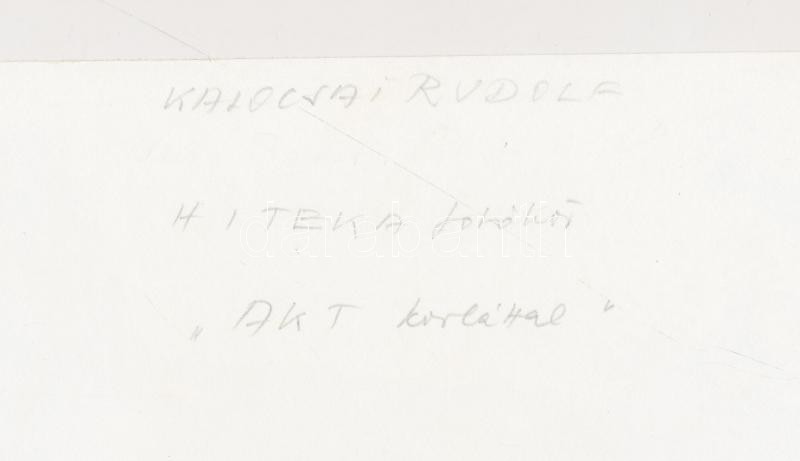 KALOCSAI RUDOLF
HITEKA fotókör
darabanth
„AKT korláttal"